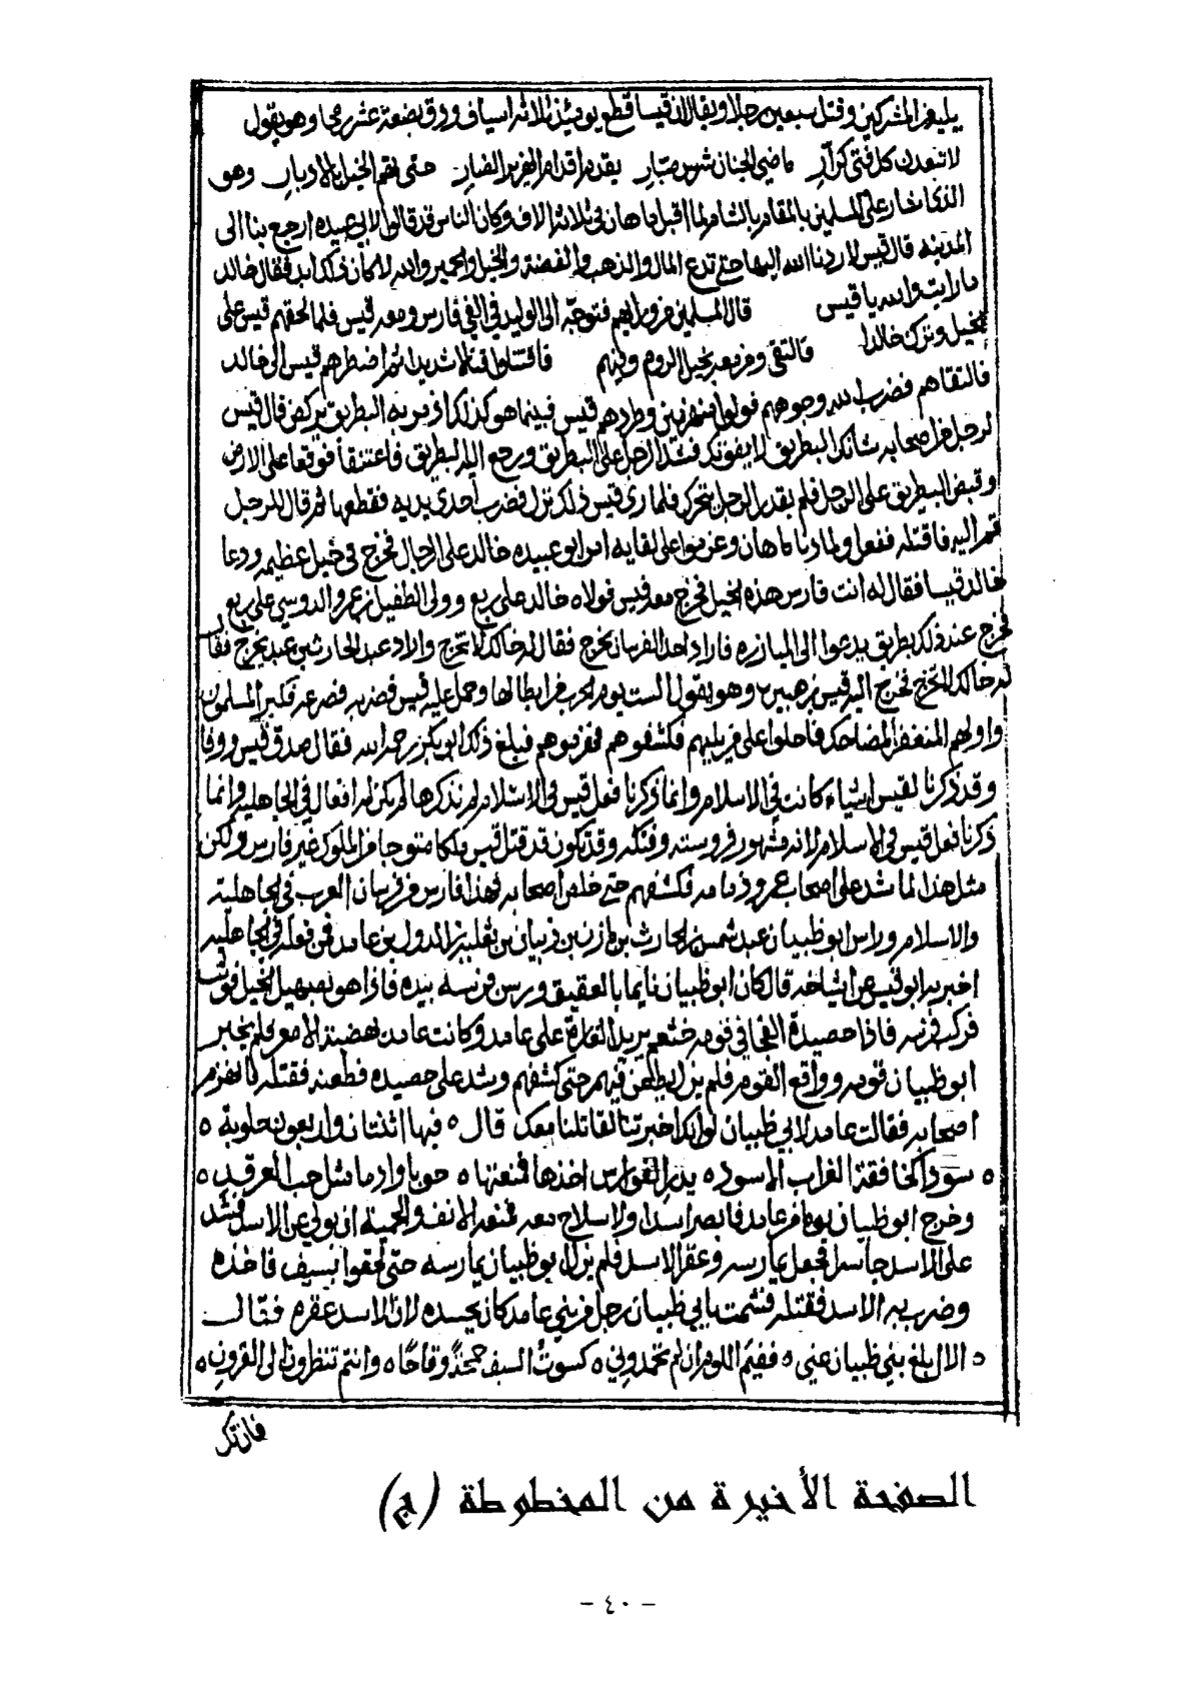 يليه من المشركين وقتل سبعين رجلا ويقال ان قيسا قطع يومئذ ثلاثة اسياف ودق بضعة عشر رمحا وهو يقول
لا تبعدن كل فتى كرار ماضي الجنان شرس صبار يقدم اقدام الهزبر الضار حتى تقم الخيل بالادبار وهو
الذي اشار على المسلمين بالمقام بالشام لما اقبل باهان في ثلاثة الاف وكان الناس قد قالوا لابي عبيده ارجع بنا الى
المدينه قال قيس لا ردنا الله اليها حتى تدع المال والذهب والفضة والخيل والحمير والله لا كان ذلك ابدا فقال خالد
ما رايت والله يا قيس قال المسلمين فتوجه الى الوليد في الفي فارس ومعه قيس فلما لحقهم قيس على
بخيل وترك خالدا فالتقى ومن معه بخيل الروم فاقتتلوا قتالا شديدا ثم اضطرهم قيس الى خالد
فالتقاهم فضرب الله وجوههم فولوا منهزمين وطردهم قيس فبينما هو كذلك اذ مر به البطريق يركض قال قيس
لرجل من اصحابه شانك البطريق لا يفوتك فشد الرجل على البطريق ورجع اليه البطريق فاعتنقا فوقعا على الارض
وقبض البطريق على الرجل فلم يقدر الرجل يتحرك فلما رى قيس ذلك نزل فضرب احدى يديه فقطعها ثم قال للرجل
قم اليه فاقتله ففعل ولما دنا باهان وعزموا على لقايه امر ابو عبيده خالد على الرجال فخرج في خيل عظيمه ودعا
خالد قيسا فقال له انت فارس هذه الخيل فخرج معه قيس فولاه خالد على ربع وولى الطفيل بن عمرو الدوسي على ربع
فخرج عند ذلك بطريق يدعوا الى المبارزه فاراد احد الفرسان يخرج فقال له خالد لا تخرج واراد عبد الحارث بن عبد يخرج فقال
له خالد لا تخرج فخرج اليه قيس بن هبيره وهو يقول الست يوم الحرب من ابطالها وحمل عليه قيس فضربه فصرعه فكبر المسلمون
فاحملوا على من يليهم فكشفوهم فبلغ ذلك ابو بكر رحمه الله فقال صدق قيس ووفا
وقد ذكرنا لقيس اشياء كانت في الاسلام وانما ذكرنا فعل قيس في الاسلام لم نذكرها لم يكن له افعال في الجاهليه وانما
ذكرنا فعل قيس في الاسلام لانه مشهور فروسته وفتكه وقد يكون قد قتل قيس ملكا متوجا من الملوك غير فارس ولكن
مثل هذا لما شد على اصحاب عمرو فكشفهم حتى خلص اصحابه فهذا فارس من فرسان العرب في الجاهليه
والاسلام وراس ابو ظبيان عبد شمس بن الحارث بن مازن بن ذبيان بن ثعلبه بن الدول بن غامد فمن فعله في الجاهليه
اخبر به ابو قيس عن اشياخه قال كان ابو ظبيان نايما بالعقيق ورسن فرسه بيده فاذا هو بصهيل الخيل فوثب
فركب فرسه فاذا حصيدة القحافي في قومه خثعم يريد الغارة على غامد وكانت غامد بهضبة الامعر فلم يخبر
ابو ظبيان قومه وواقع القوم فلم يزل يطعن فيهم حتى كشفهم وشد على حصيده فطعنه فقتله فانهزم
اصحابه فقالت غامد لابي ظبيان لو انك اخبرتنا لقاتلنا معك قال ٥ فيها اثنتان واربعون حلوبة ٥
٥ سودا كخافقة الغراب الاسود ٥ الفوارس اخذها فمنعتها ٥ حوبا وادما مثل حب الغرقد ٥
وخرج ابو ظبيان يوما من غامد فابصر اسدا ولا سلاح معه فمنعه الانف والحمية ان يولي عن الاسد فشد
على الاسد جاسرا فجعل يمارسه وعقر الاسد فلم يزل ابو ظبيان يمارسه حتى لحقوا بسيف فاخذه
وضرب به الاسد فقتله فشمت بابي ظبيان رجل من بني غامد كان يحسده لان الاسد عقره فقال
٥ الا ابلغ بني ظبيان عني ٥ ففيم اللوم ان لم تحمدوني ٥ كسوت السيف جمجمة وقاحا ٥ وانتم تنظرون الى القرون ٥
فان تك
الصفحة الأخيرة من المخطوطة (ج)
- ٤٠ -